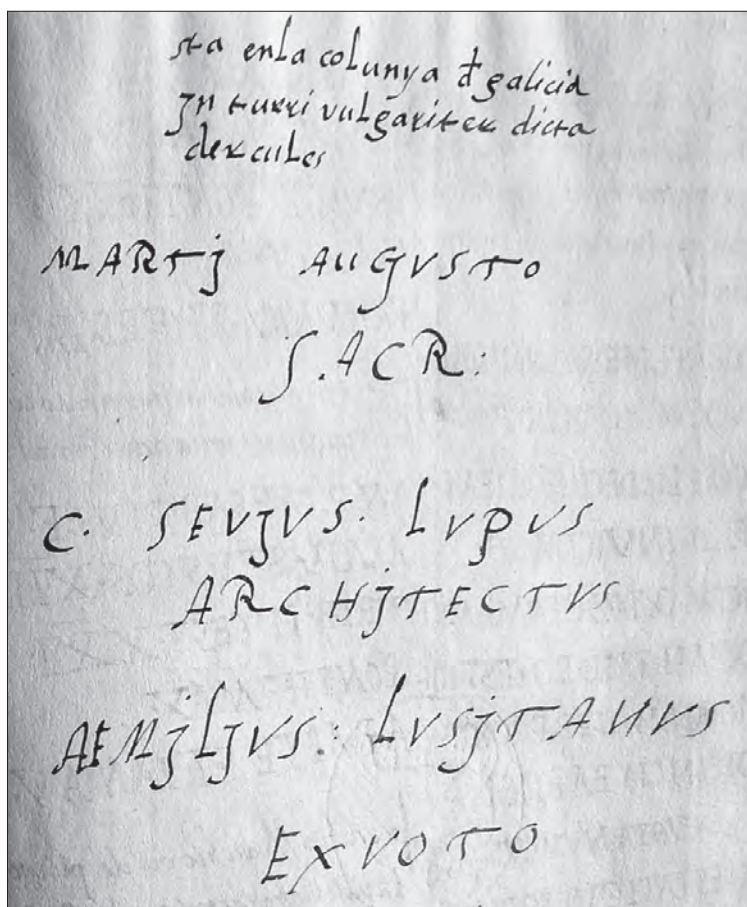 sta enla colunya đ galicia
jn turri vulgariter dicta
dercules
MARTj AUGVSTO
S.ACR:
C. SEVJVS: LVPVS
ARCHjTECTVS
AEMjLJVS.: LVSjTANVS
EXVOTO